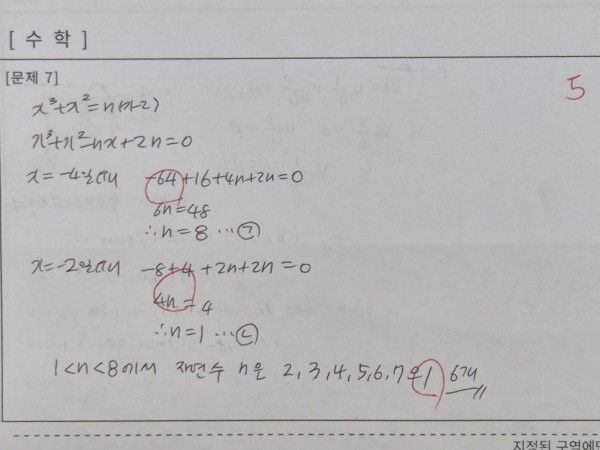 [ 수 학 ]
[문제 7]
5
x³+x²=n(x-2)
x³+x²-nx+2n=0
x=-4일때 -64+16+4n+2n=0
6n=48
∴n=8 …㉠
x=-2일때 -8+4+2n+2n=0
4n=4
∴n=1 …㉡
1<n<8에서 자연수 n은 2,3,4,5,6,7의 6개
지정된 구역에만